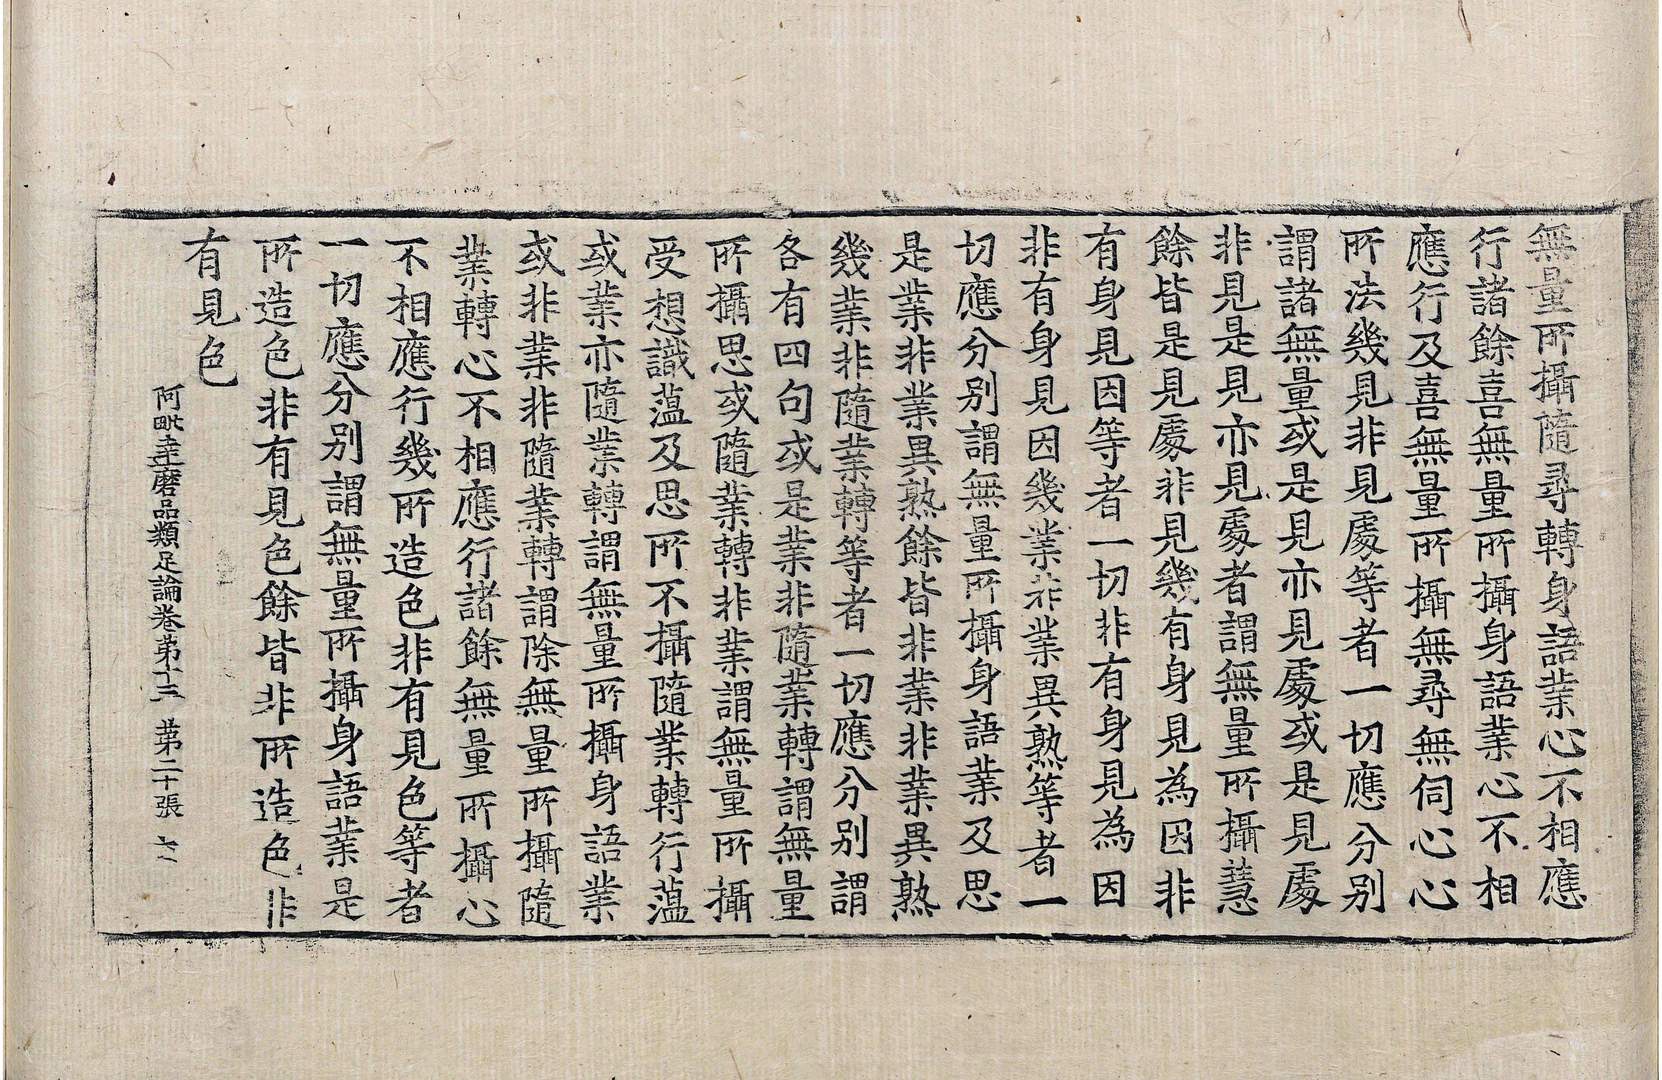 無量所攝隨尋轉身語業心不相應
行諸餘喜無量所攝身語業心不相
應行及喜無量所攝無尋無伺心心
所法幾見非見處等者一切應分别
謂諸無量或是見亦見處或是見處
非見是見亦見處者謂無量所攝慧
餘皆是見處非見幾有身見為因非
有身見因等者一切非有身見為因
非有身見因幾業非業異熟等者一
切應分别謂無量所攝身語業及思
是業非業異熟餘皆非業非業異熟
幾業非隨業轉等者一切應分别謂
各有四句或是業非隨業轉謂無量
所攝思或隨業轉非業謂無量所攝
受想識薀及思所不攝隨業轉行薀
或業亦隨業轉謂無量所攝身語業
或非業非隨業轉謂除無量所攝隨
業轉心不相應行諸餘無量所攝心
不相應行幾所造色非有見色等者
一切應分别謂無量所攝身語業是
所造色非有見色餘皆非所造色非
有見色
阿毗達磨品類足論卷第十三 第二十張